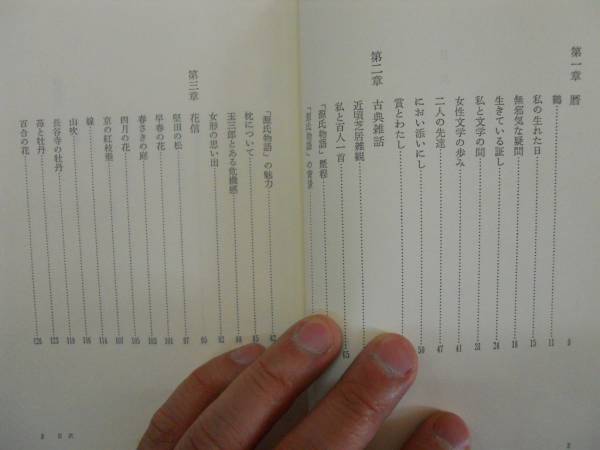 第一章 暦 9
鶴 11
私の生れた日 15
無邪気な疑問 18
生きている証し 24
私と文学の間 31
女性文学の歩み 41
二人の先達 47
におい添いにし 50
賞とわたし
第二章 古典雑話
近頃芝居雑観
私と百人一首 65
『源氏物語』歴程
『源氏物語』の背景
『源氏物語』の魅力 82
枕について 85
玉三郎とある危機感 88
女形の思い出 92
第三章 花信 95
堅田の松 97
早春の花 101
春さきの庭 103
四月の花 107
京の紅枝垂 114
線 116
山吹 119
長谷寺の牡丹 123
苺と牡丹 126
百合の花
3 目次
2